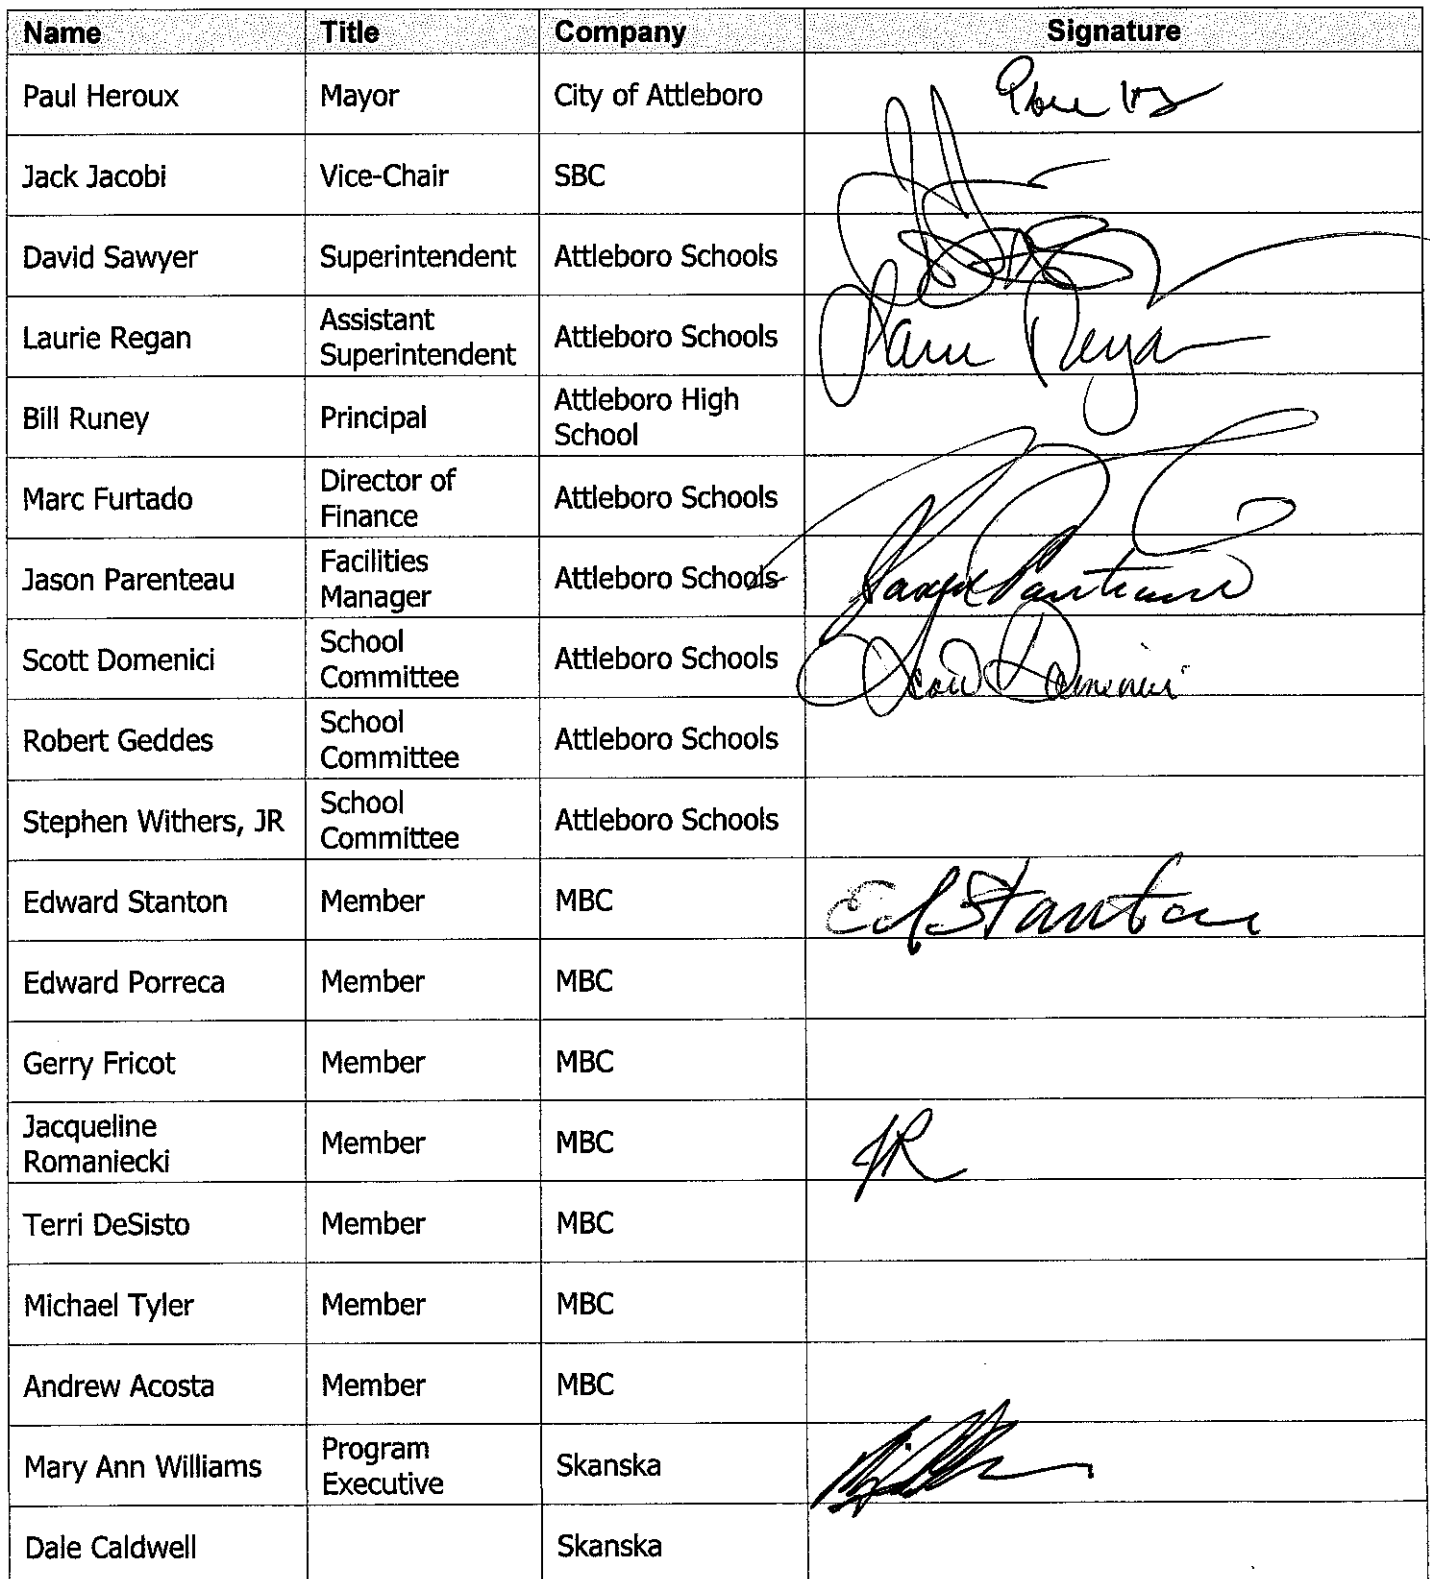 Name Title Company Signature
Paul Heroux Mayor City of Attleboro
Jack Jacobi Vice-Chair SBC
David Sawyer Superintendent Attleboro Schools
Laurie Regan Assistant Superintendent Attleboro Schools Laurie Regan
Bill Runey Principal Attleboro High School
Marc Furtado Director of Finance Attleboro Schools
Jason Parenteau Facilities Manager Attleboro Schools Jason Parenteau
Scott Domenici School Committee Attleboro Schools Scott Domenici
Robert Geddes School Committee Attleboro Schools
Stephen Withers, JR School Committee Attleboro Schools
Edward Stanton Member MBC Ed Stanton
Edward Porreca Member MBC
Gerry Fricot Member MBC
Jacqueline Romaniecki Member MBC JR
Terri DeSisto Member MBC
Michael Tyler Member MBC
Andrew Acosta Member MBC
Mary Ann Williams Program Executive Skanska
Dale Caldwell Skanska